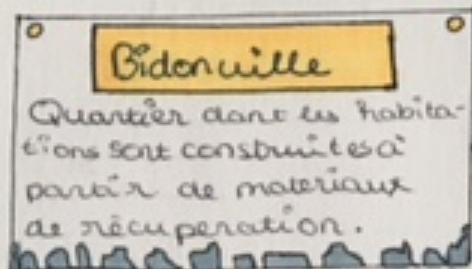 Bidonville
Quartier dont les habita-
tions sont construites à
partir de materiaux
de récuperation.